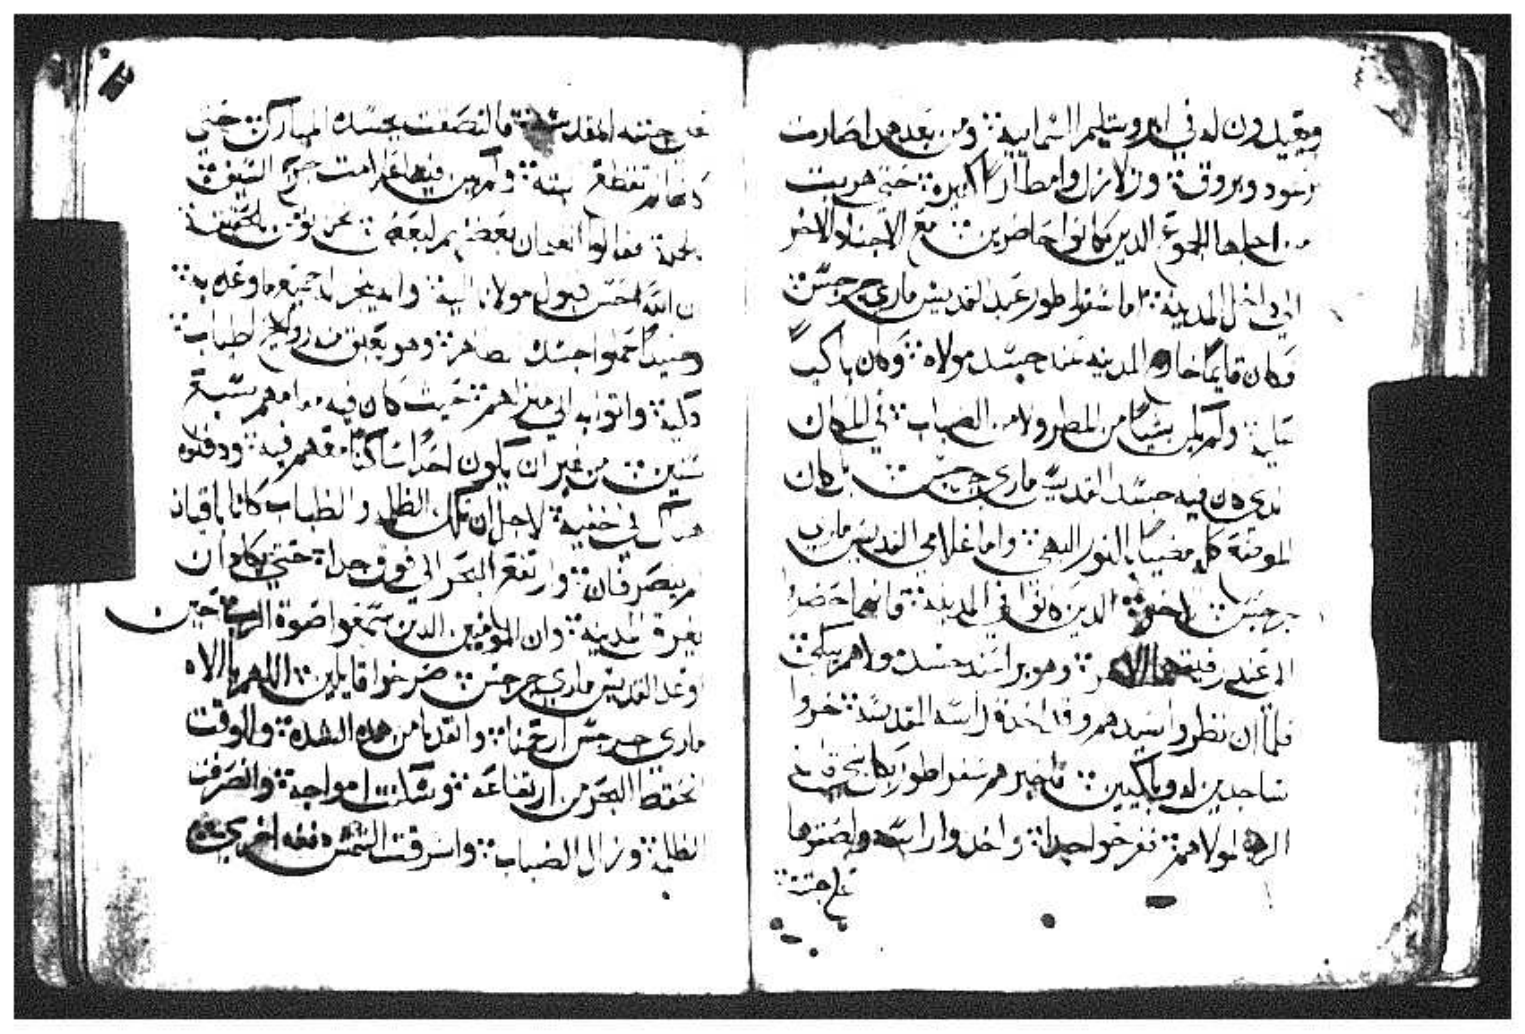 ويعيدون له في اورشليم السمايية ܀ ومن بعد هدا صارت
رعود وبروق ܀ وزلازل وامطار كثيره ܀ حتي هربت
من اجلها الجموع الدين كانوا حاضرين ܀ مع الاجناد الاخر
الي داخل المدينة ܀ اما سقراطور عبد القديس ماري جرجس ܀
وكان قايما خارج المدينه عند جسد مولاه ܀ وكان باكيا
عليه ܀ ولم يكن شيا من المطر ولا من الضباب ܀ في المكان
الدي كان فيه جسد القديس ماري جرجس ܀ بل كان
الموضع كله مضييا بالنور البهي ܀ واما غلامي القديس ماري
جرجس ܀ الاخر ܀ الدين كانوا في المدينة ܀ فانهما حضروا
الي عند رفيقهما الاخر ܀ وهو يراسد جسد ولاهم يبكي ܀
فلما ان نظروا سيدهم وقد اخدة راسه المقدسه ܀ خروا
ساجدين له وباكيين ܀ فاخبرهم سقراطور بكلما
الرب لمولاهم ܀ ففرحوا جدا ܀ واخدوا راسه ولصقوها
علي جتته ܀
علي جتته المقدسه ܀ فالتصقت بجسده المبارك ܀ حتي
كانها لم تقطع البته ܀ ولم يبن فيها علامت جرح السيف ܀
فقالوا الغلمان بعضهم لبعض ܀ نحن نومن بالحقيقة ܀
ان الله احسن قبول مولانا اليه ܀ وانه ينجز له جميع ما وعده به ܀
وحينيدا حملوا جسده الطاهر ܀ وهو يعبق من روايح اطياب ܀
دكية ܀ واتوا به الي منزلهم ܀ حيث كان فيه سبع
سنين ܀ من غير ان يكون احدا ساكنا معهم فيه ܀ ودفنوه
هناك في خفيه ܀ لاجل ان تلك الظلمه والضباب كانا باقيان
لم ينصرفان ܀ وارتفع البحر الي فوق جدا ܀ حتي كاد ان
يغرق المدينه ܀ وان المومنين الدين سمعوا صوة الرب حين
اوعد القديس ماري جرجس ܀ صرخوا قايلين ܀ اللهم يا الاه
ماري جرجس ارحمنا ܀ وانقدنا من هده الشده ܀ وللوقت
انحفط البحر من ارتفاعه ܀ وسكنت امواجه ܀ وانصرفت
الظلمة ܀ وزال الضباب ܀ واشرقت الشمس دفعه اخري